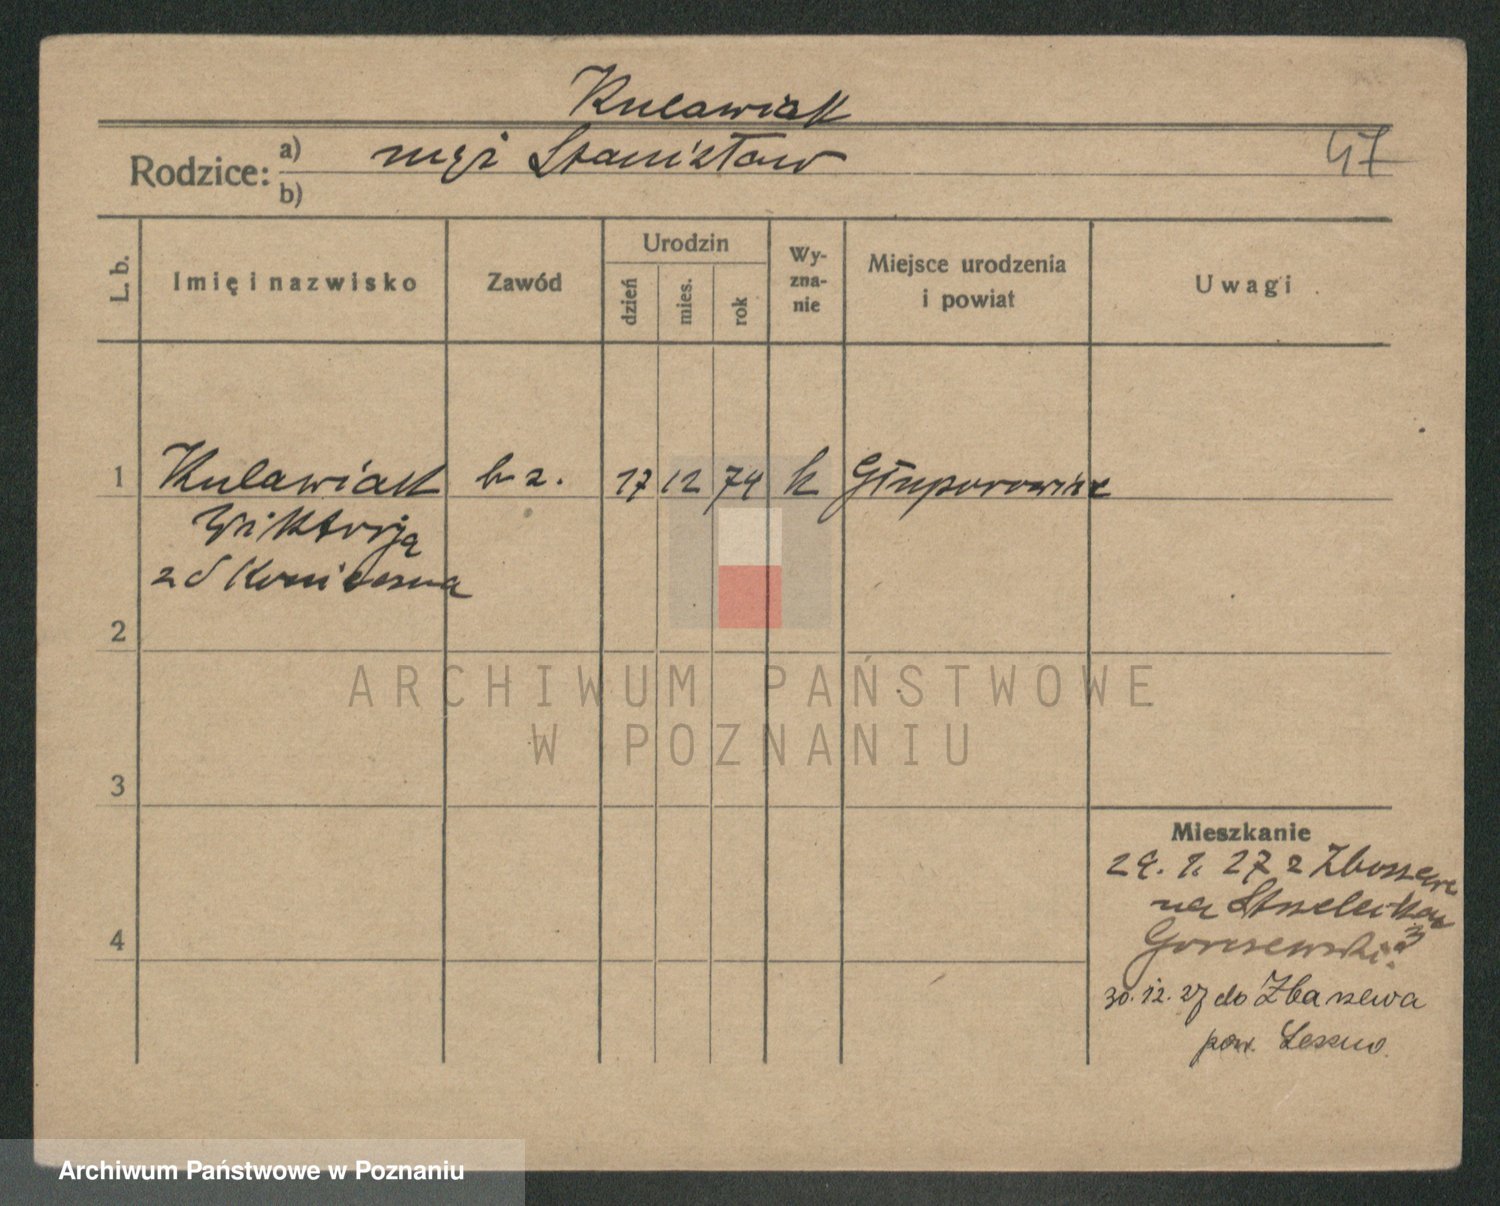 Kulawiak
Rodzice: a) mąż Stanisław
47
b)
L. b.
Imię i nazwisko
Zawód
Urodzin
dzień
mies.
rok
Wy-
zna-
nie
Miejsce urodzenia
i powiat
Uwagi
1 Kulawiak b z. 17 12 74 k
Wiktorja
z d
2
ARCHIWUM PAŃSTWOWE
W POZNANIU
3
Mieszkanie
27 z
na
4
30. 12. 27 do Zbarzewa
pow. Leszno.
Archiwum Państwowe w Poznaniu